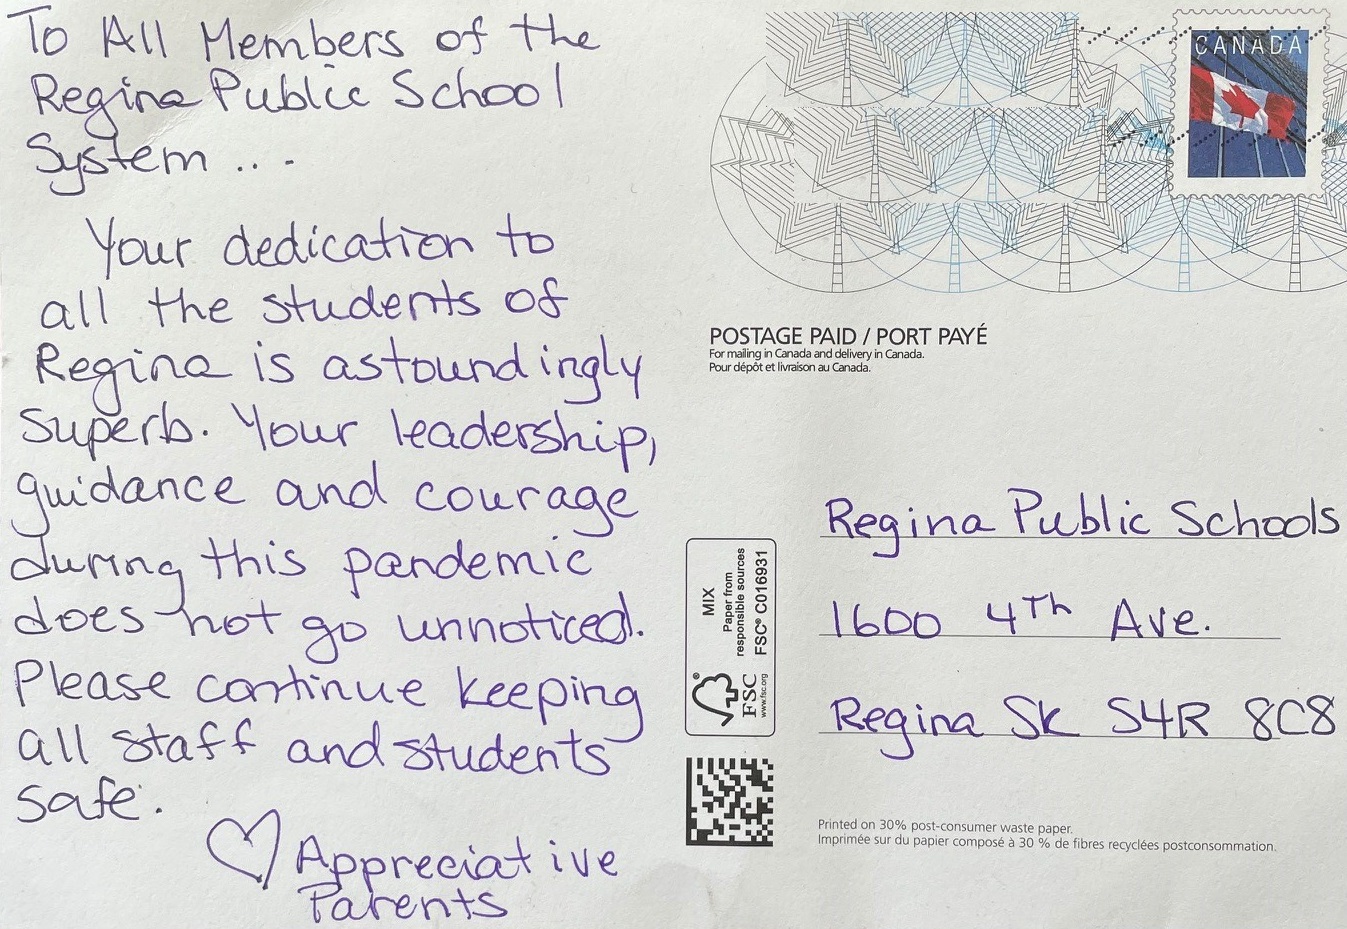 To All Members of the
Regina Public School
System ...
Your dedication to
all the students of
Regina is astoundingly
superb. Your leadership,
guidance and courage
during this pandemic
does not go unnoticed.
Please continue keeping
all staff and students
safe.
♡ Appreciative
Parents
CANADA
POSTAGE PAID / PORT PAYÉ
For mailing in Canada and delivery in Canada.
Pour dépôt et livraison au Canada.
Regina Public Schools
1600 4Th Ave.
Regina Sk S4R 8C8
MIX
Paper from
responsible sources
FSC® C016931
FSC
www.fsc.org
®
Printed on 30% post-consumer waste paper.
Imprimée sur du papier composé à 30 % de fibres recyclées postconsommation.